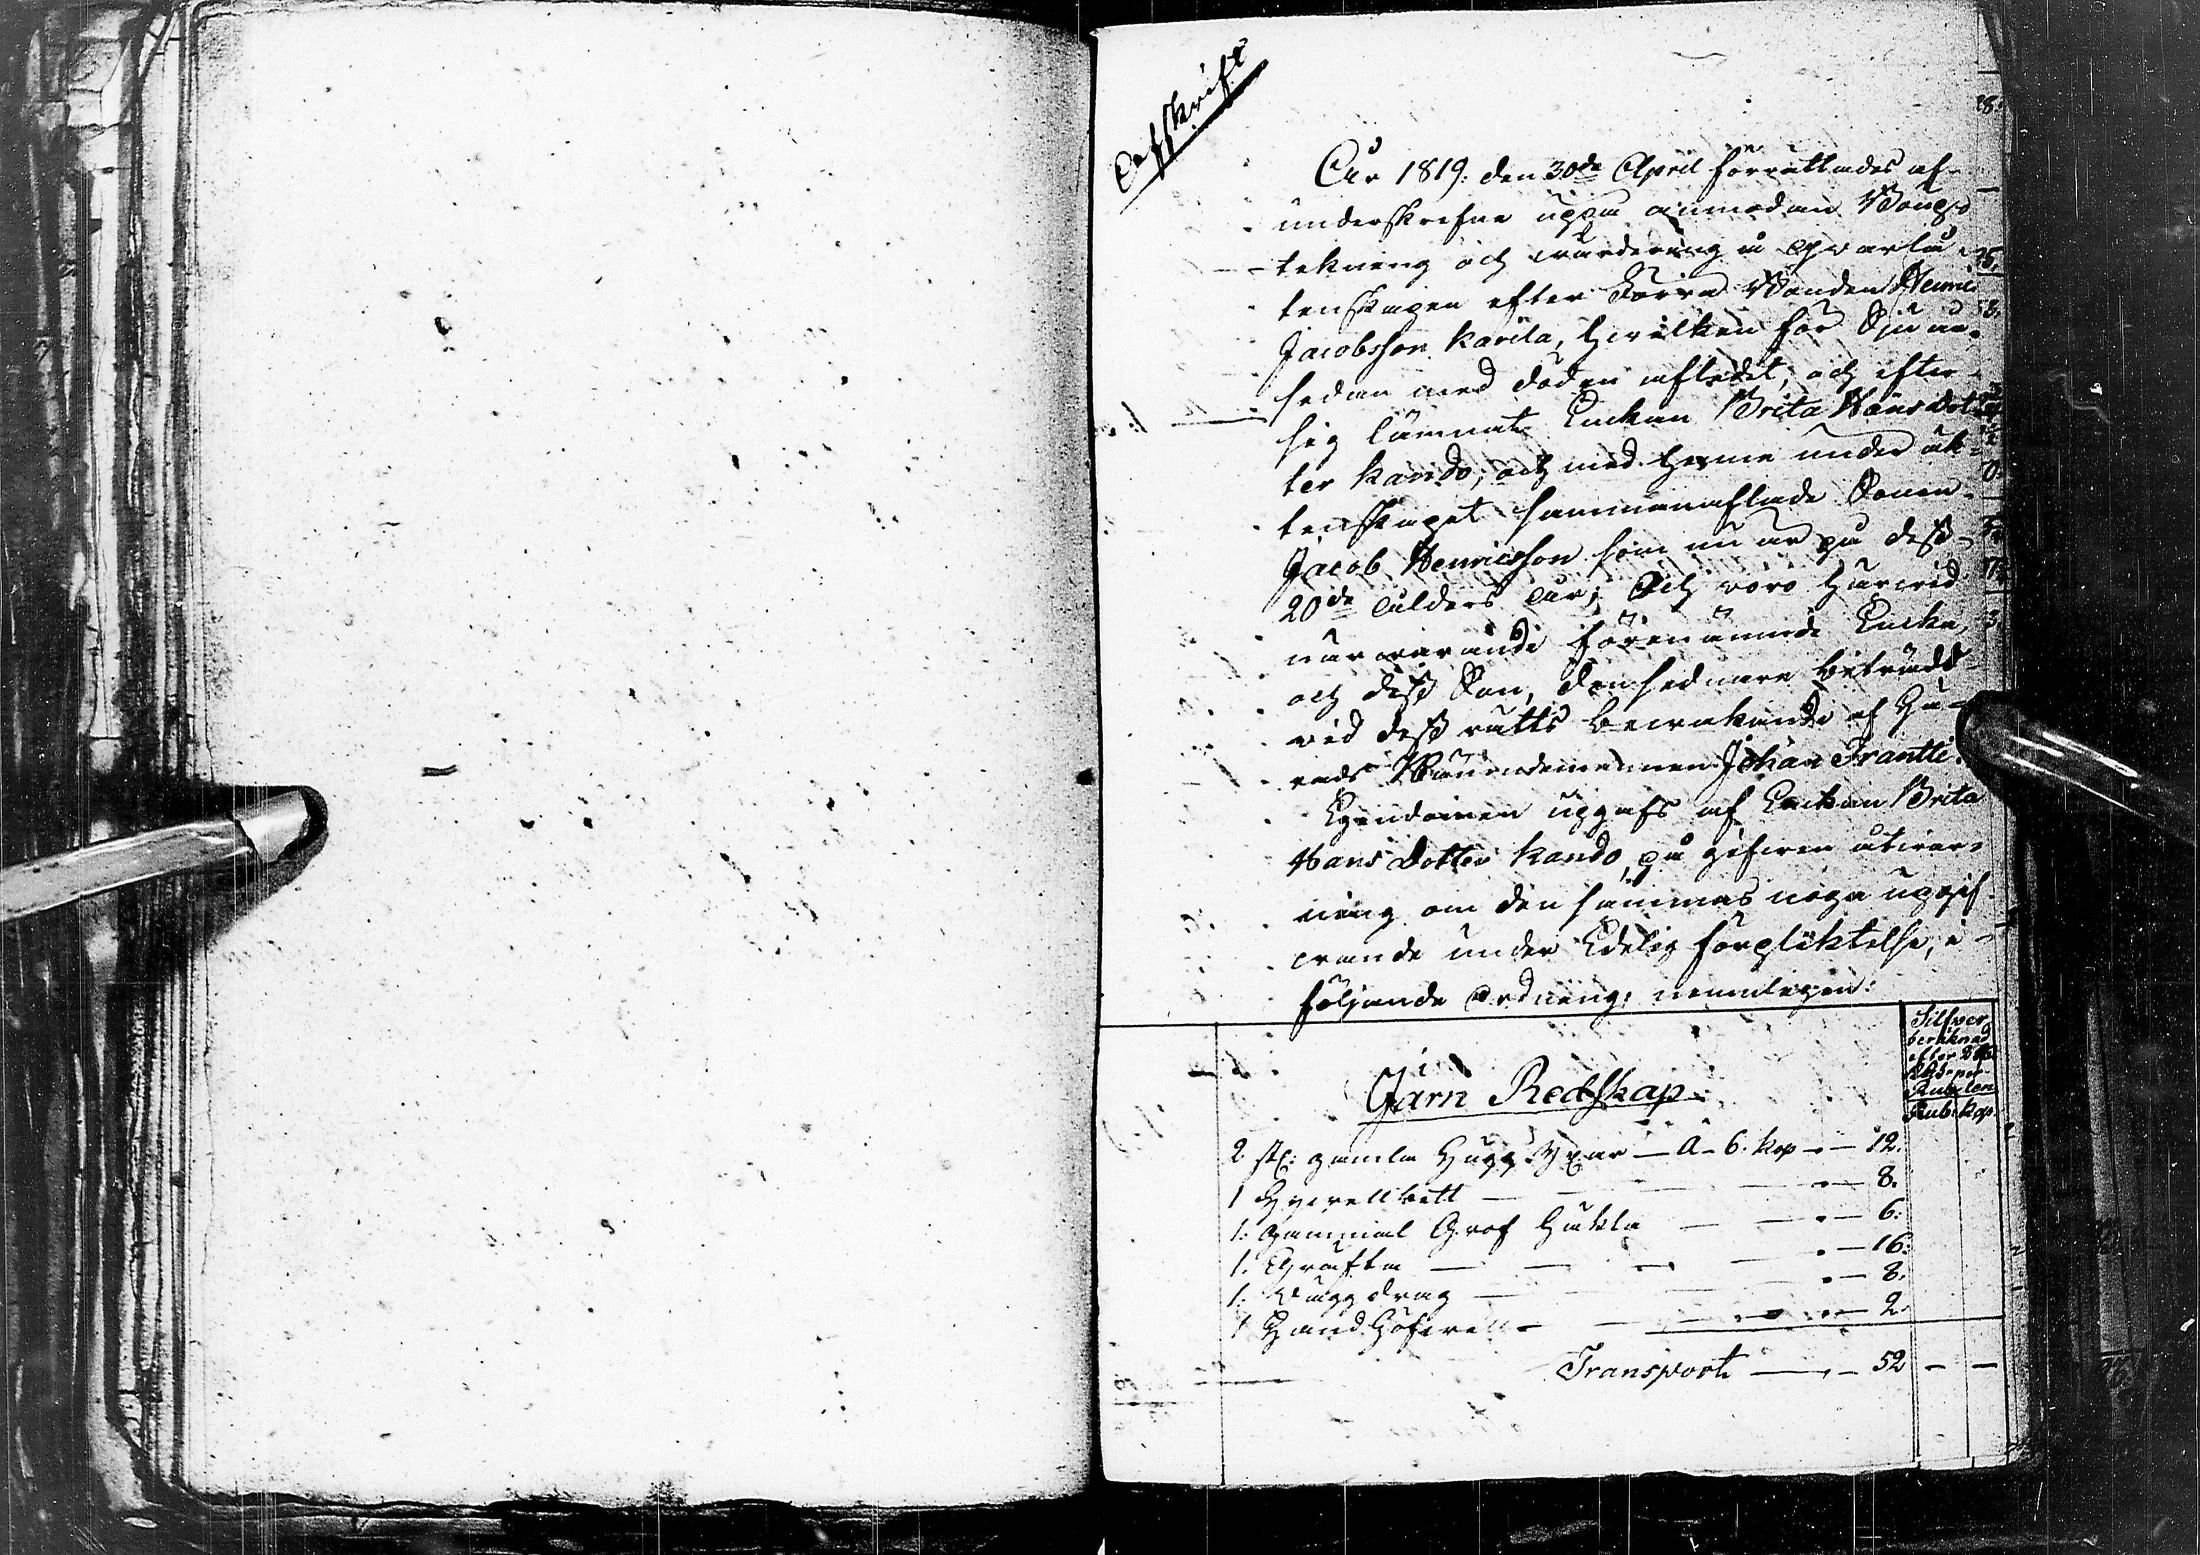 Afskrift
År 1819. den 30de April förrättades af
underskrefne uppå anmodan Boupp-
tekning och wärdering å qvarlå-
tenskapen efter Torra Bonden Henric
Jacobsson Karila, hvilken för Sju år
sedan med döden afledet, och efter
sig lämnat Enckan Brita Hansdot-
ter Kando, och med henne under äk-
tenskapet sammanaflade Sonen
Jacob Henricsson som nu är på dess
20de ålders år; Och voro härvid
närvarande förenämnde Encka,
och dess Son, den sednare biträdd
vid dess rätts bevakande af Hä-
rads Nämndemannen Johan Frantti.
Egendomen uppgafs af Enckan Brita
Hans dotter Kando, på gifven åtvar-
ning om den sammas noga uppgif-
vande under Edelig förpliktelse, i
följande ordning: nemligen:
Silfver
beräknad
efter
Rubelen
Rub. kop.
Järn Redskap.
2 st: gamla Hugg Yxar — a 6. kop — 12.
1 — 8.
1. gammal Grof Hackla — 6.
1. — 16.
1. — 8.
1 Hand — 2.
Transport — 52 — —